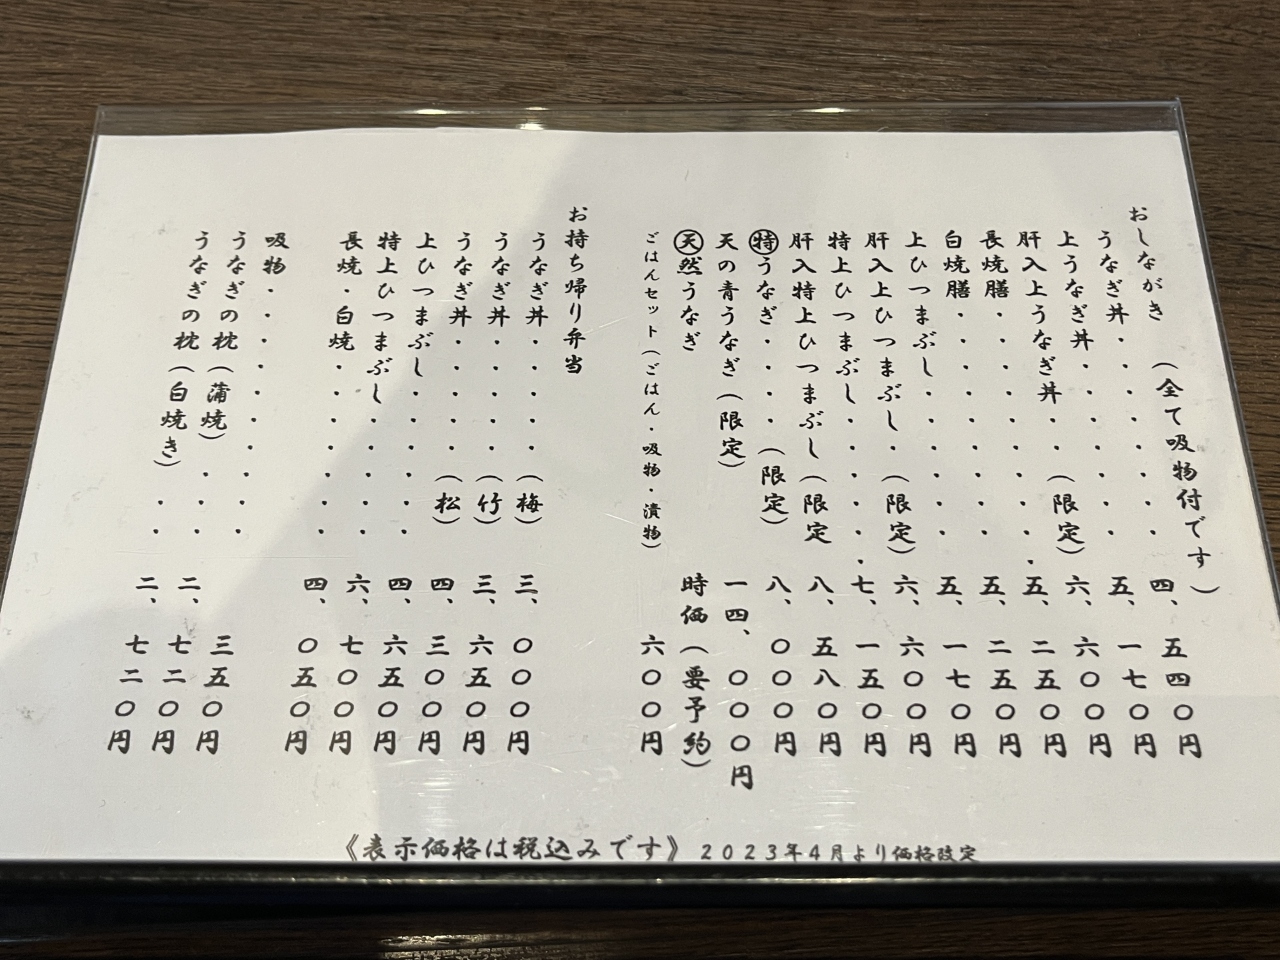 おしながき (全て吸物付です)
うなぎ丼・・・・・・・四、五四〇円
上うなぎ丼・・・・・・五、一七〇円
肝入上うなぎ丼・・(限定)六、六〇〇円
長焼膳・・・・・・・・五、二五〇円
白焼膳・・・・・・・・五、二五〇円
上ひつまぶし・・・・・五、一七〇円
肝入上ひつまぶし・(限定)六、六〇〇円
特上ひつまぶし・・・・七、一五〇円
肝入特上ひつまぶし(限定 八、五八〇円
㊕うなぎ・・・・(限定)八、〇〇〇円
天の青うなぎ(限定)一四、〇〇〇円
天然うなぎ 時価(要予約)
ごはんセット(ごはん・吸物・漬物)六〇〇円
お持ち帰り弁当
うなぎ丼・・・・・(梅)三、〇〇〇円
うなぎ丼・・・・・(竹)三、六五〇円
うなぎ丼・・・・・(松)四、三〇〇円
上ひつまぶし・・・・・四、六五〇円
特上ひつまぶし・・・・六、七〇〇円
長焼・白焼・・・・・・四、〇五〇円
吸物・・・・・・・・・三五〇円
うなぎの枕(蒲焼)・・・二、七二〇円
うなぎの枕(白焼き)・・二、七二〇円
《表示価格は税込みです》 2023年4月より価格改定